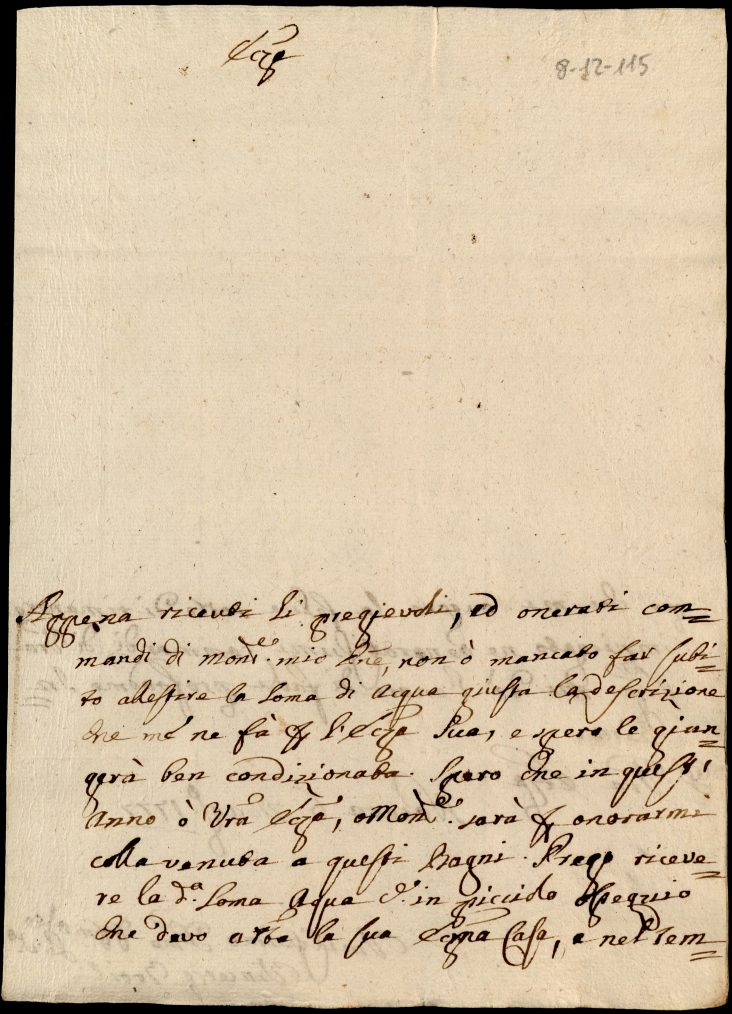 Ecc͞e
8-12-115
Appena riceuti li pregievoli, ed onorati com=
mandi di Mon.re mio P͞ne, non ò mancato far subi=
to allestire la soma di acqua giusta la descrizione
che mè ne fà p l'Ecc͞a Sua, e spero le giun=
gerà ben condizionata. Spero che in quest'
Anno ò Vr͞a Ecc͞a, o Mon.re sarà p onorarmi
colla venuta a questi Bagni. Prego riceve=
re la d.a soma Acqua in picciolo ossequio
che devo a tt͞a la sua Ecc͞ma Casa, e nel tem=